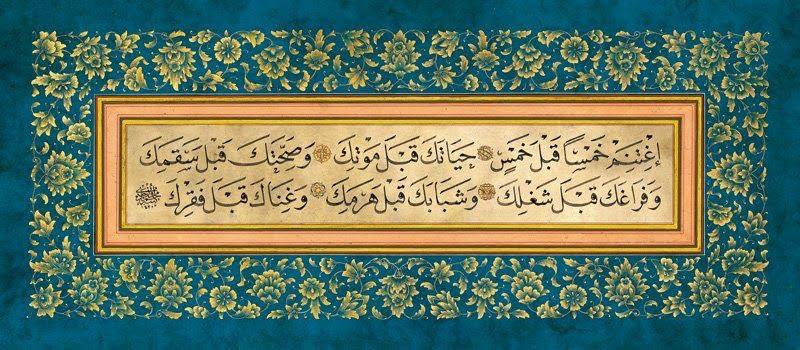 إِغْتَنِمْ خَمْسًا قَبْلَ خَمْسٍ حَيَاتَكَ قَبْلَ مَوْتِكَ وَصِحَّتَكَ قَبْلَ سَقَمِكَ
وَفَرَاغَكَ قَبْلَ شُغْلِكَ وَشَبَابَكَ قَبْلَ هَرَمِكَ وَغِنَاكَ قَبْلَ فَقْرِكَ